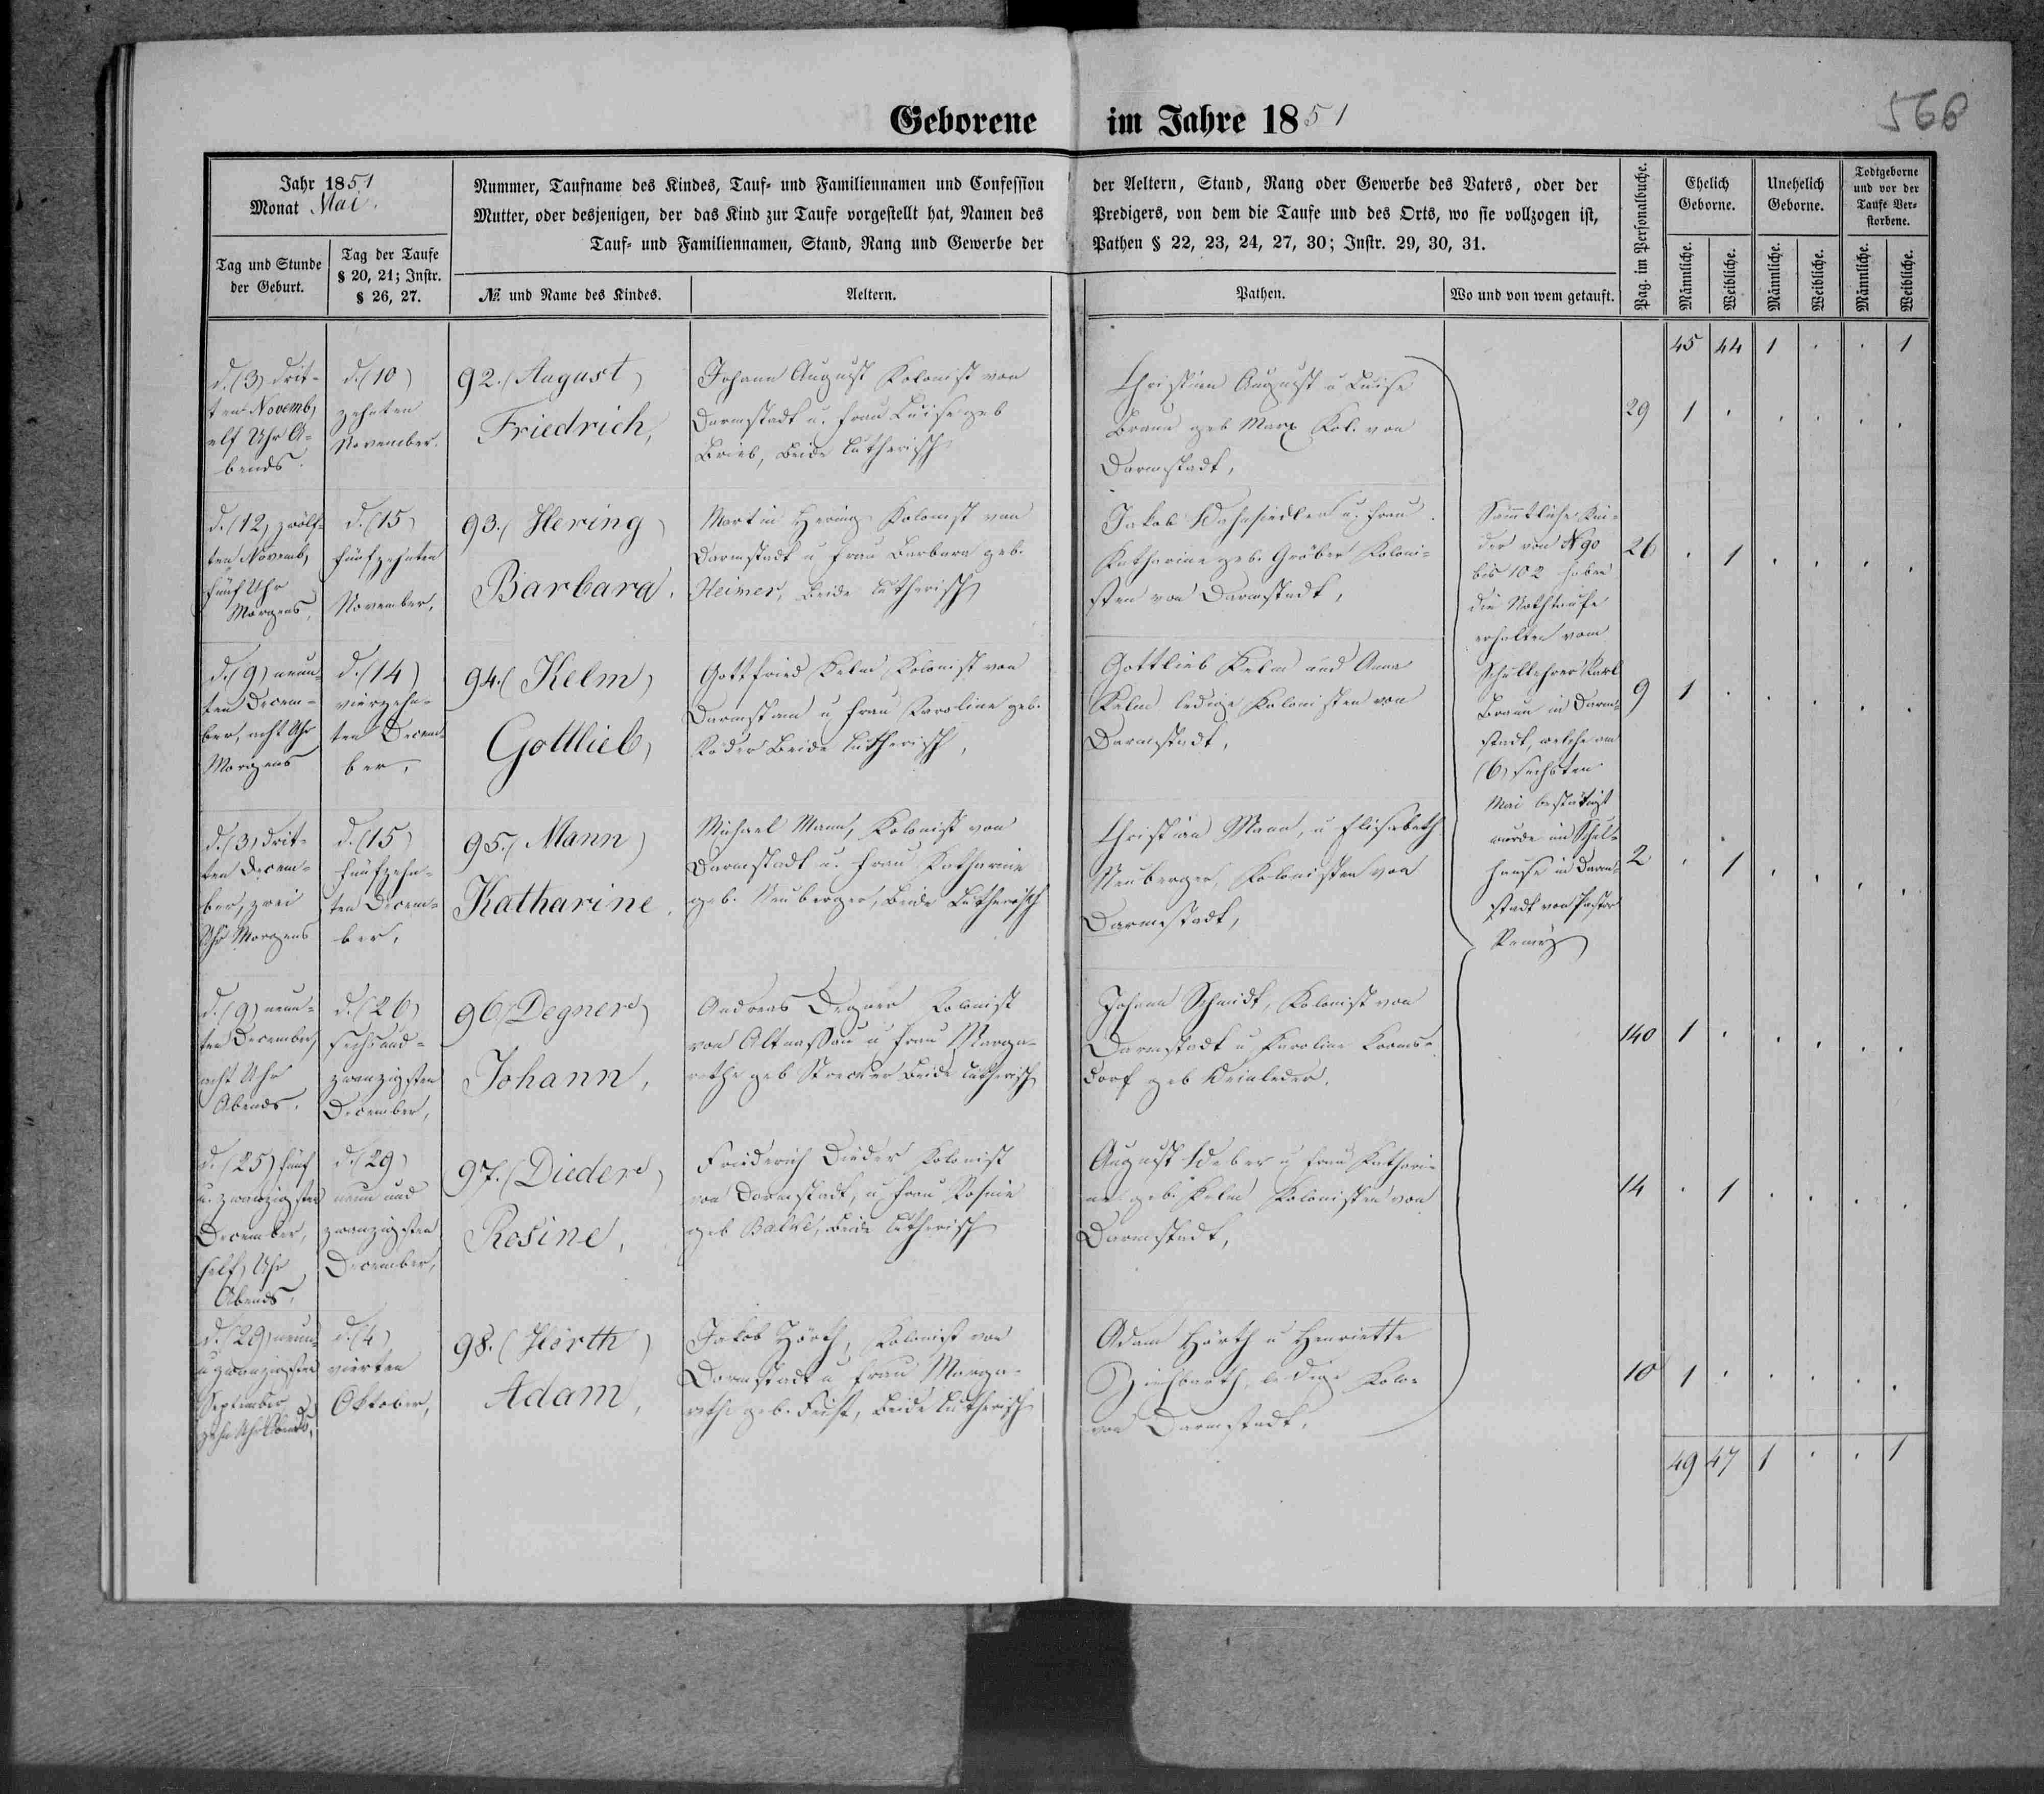 Geborene im Jahre 1851
566
Jahr 1851
Monat Mai.
Tag und Stunde
der Geburt.
Tag der Taufe
§ 20, 21; Instr.
§ 26, 27.
Nummer, Taufname des Kindes, Tauf- und Familiennamen und Confession der Aeltern, Stand, Rang oder Gewerbe des Vaters, oder der
Mutter, oder desjenigen, der das Kind zur Taufe vorgestellt hat, Namen des Predigers, von dem die Taufe und des Orts, wo sie vollzogen ist,
Tauf- und Familiennamen, Stand, Rang und Gewerbe der Pathen § 22, 23, 24, 27, 30; Instr. 29, 30, 31.
№ und Name des Kindes.
Aeltern.
Pathen.
Wo und von wem getauft.
Pag. im Personalbuche.
Ehelich
Geborne.
Unehelich
Geborne.
Todtgeborne
und vor der
Taufe Ver-
storbene.
Männliche.
Weibliche.
Männliche.
Weibliche.
Männliche.
Weibliche.
45 44 1 . . 1
d. (3) drit-
ten Novemb,
elf Uhr A-
bends.
d. (10)
zehnten
November.
92. (August)
Friedrich,
Johann August Kolonist von
Darmstadt u. Frau Luise geb
Beide lutherisch
Christian August u Luise
Braun geb Marx Kol. von
Darmstadt,
29 1 . . . . .
d. (12) zwölf-
ten Novemb,
fünf Uhr
Morgens,
d. (15)
fünfzehnten
November,
93. (Hering)
Barbara.
Martin Hering Kolonist von
Darmstadt u Frau Barbara geb.
Heimer, Beide lutherisch
Jakob u. Frau
Katharine geb. Gräber Koloni-
sten von Darmstadt,
26 . 1 . . . .
d. (9) neun-
ten Decem-
ber, acht Uhr
Morgens
d. (14)
vierzehn-
ten Decem-
ber,
94. (Kelm)
Gottlieb,
Gottfried Kelm Kolonist von
u Frau Karoline geb.
Beide lutherisch,
Gottlieb Kelm und Anna
Kelm ledige Kolonisten von
Darmstadt,
9 1 . . . . .
d. (3) drit-
ten Decem-
ber, zwei
Uhr Morgens
d. (15)
fünfzehn-
ten Decem-
ber,
95. (Mann)
Katharine,
Michael Mann, Kolonist von
Darmstadt u. Frau Katharine
geb. Neuberger, Beide Lutherisch
Christian Mann, u Elisabeth
Neuberger, Kolonisten von
Darmstadt,
2 . 1 . . . .
Sämmtliche Kin-
der von N 90
bis 102 haben
die Nothtaufe
erhalten vom
Schullehrer Karl
Braun in Darm-
stadt, welche am
(6) sechsten
Mai bestätigt
wurde im Schul-
hause in Darm-
stadt von Pastor
d. (9) neun-
ten December,
acht Uhr
Abends.
d. (26)
sechsund-
zwanzigsten
December,
96. (Degner)
Johann,
Andreas Degner Kolonist
von Altnassau u Frau Marga-
rethe geb Beide lutherisch
Johann Schmidt, Kolonist von
Darmstadt u Karoline
dorf geb
140 1 . . . . .
d. (25) fünf
u. zwanzigsten
December,
(elf) Uhr
Abends,
d. (29)
neun und
zwanzigsten
December,
97. (Dieder)
Rosine,
Friederich Dieder Kolonist
von Darmstadt, u Frau Rosine
geb Beide lutherisch
August Weber u Frau Kathari-
ne geb. Kelm Kolonisten von
Darmstadt,
14 . 1 . . . .
d. (29) neun-
u zwanzigsten
September
zehn Uhr Abends,
d. (4)
vierten
Oktober,
98. (Hörth)
Adam,
Jakob Hörth, Kolonist von
Darmstadt u Frau Marga-
rethe geb. Feist, Beide lutherisch
Adam Hörth u Henriette
ledige Kolo-
von Darmstadt,
10 1 . . . . .
49 47 1 . . 1